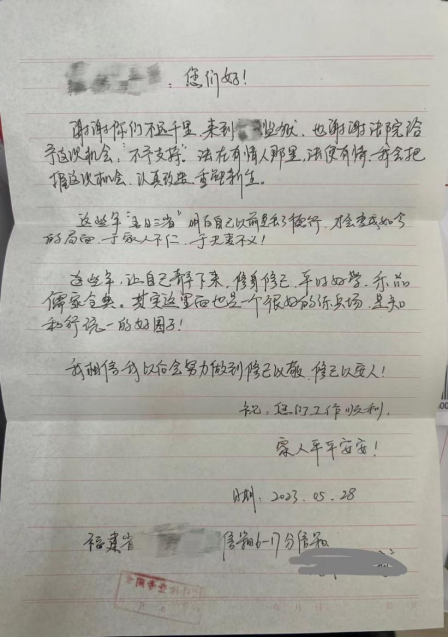 ：您们好！
谢谢你们不远千里，来到 监狱，也谢谢法院给
予这次机会，"不予支持"。法在有情人那里，法便有情，我会把
握这次机会，认真改造，重获新生。
这些年"吾日三省"明白自己以前是丢了德行，才会变成如今
的局面，于家人不仁，于夫妻不义！
这些年，让自己静下来，修身修己，平时好学，
儒家经典。其实这里面也是一个很好的练兵场，是知
和行统一的好因子！
我相信我以后会努力做到修己以敬，修己以安人！
祝：您们工作顺利，
家人平平安安！
日期：2023.05.28
福建省 信箱6-17分信箱